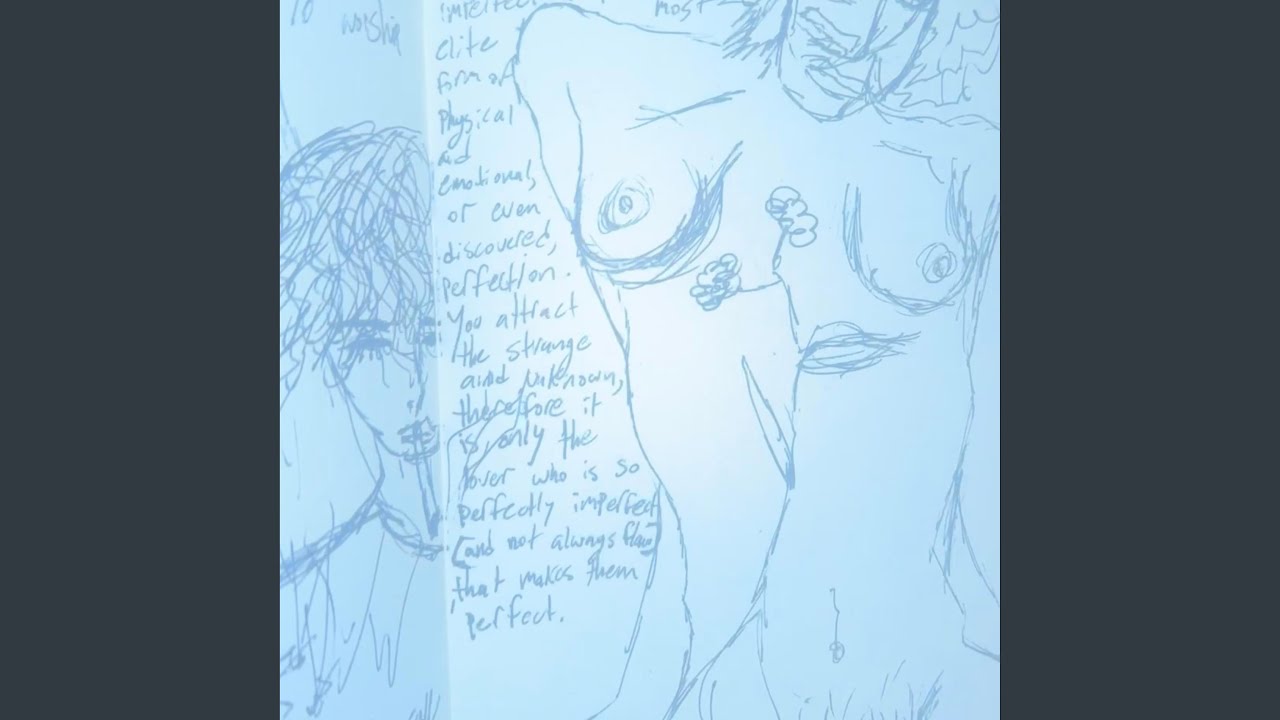 To
worship
imperfect
most
elite
form of
physical
and
emotional,
or even
discovered,
perfection.
You attract
the strange
and unknown,
therefore it
is only the
lover who is so
perfectly imperfect
(and not always flaw)
that makes them
perfect.